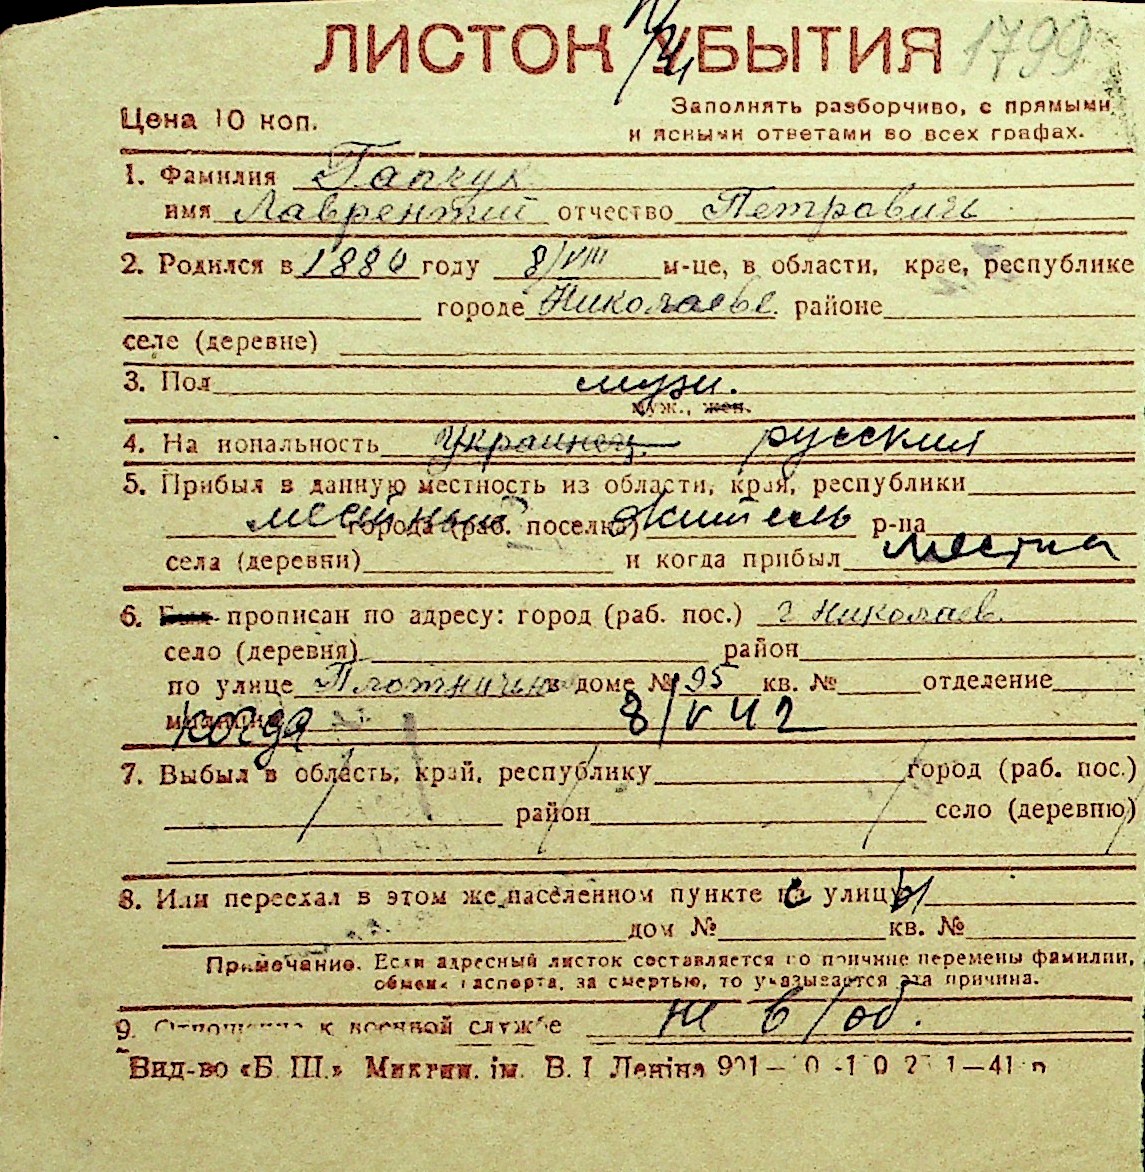 ЛИСТОК УБЫТИЯ 1799
Цена 10 коп.
Заполнять разборчиво, с прямыми
и ясными ответами во всех графах.
1. Фамилия Гапчук
имя Лаврентий отчество Петровичь
2. Родился в 1880 году 8/VIII м-це, в области, крае, республике
городе Николаеве районе
селе (деревне)
3. Пол мужч.
муж., жен.
4. Национальность Украинец русский
5. Прибыл в данную местность из области, края, республики
местный города (раб. поселка) житель р-на
села (деревни) и когда прибыл местна
6. Был прописан по адресу: город (раб. пос.) г Николаев
село (деревня) район
по улице в доме № 95 кв. № отделение
милиции когда 8/V 42
7. Выбыл в область, край, республику город (раб. пос.)
район село (деревню)
8. Или переехал в этом же населенном пункте с улицы
дом № кв. №
Примечание. Если адресный листок составляется по причине перемены фамилии,
обмена паспорта, за смертью, то указывается эта причина.
9. Отношение к военной службе не в/об.
Вид-во «Б. Ш.» Микган. ім. В. І Леніна